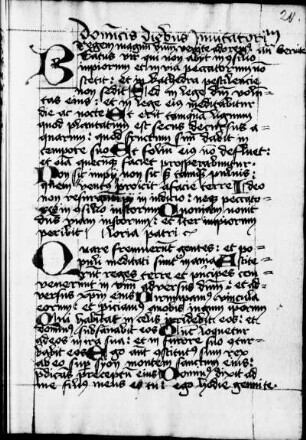 Dominicis diebus Invitatoriu
Regem magnum dnm venite adorem' an Servite
Beatus vir qui non abijt in 9silio
impiorum et in via peccatorum no
stetit : et in kathedra pestilencie
non sedit Sed in lege dni volu
tas eius : et in lege eius meditabitur
die ac nocte Et erit tamqua lignum
quod plantatum est secus decursus a
quarum : quod fructum suu dabit in
tempore suo Et foliu eius no defluet :
et oia quecuq faciet prosperabuntur.
Non sic impij non sic sz tamq pulvis :
quem ventus proicit a facie terre Ideo
non resurgunt in iudicio : neq peccato
res in 9silio iustorum Quoniam novit
dns viam iustorum : et iter impiorum
peribit Gloria patri
Quare fremuerunt gentes : et po
puli meditati sunt inania Astite
runt reges terre et principes con
venerunt in vnu adversus dnm : et ad
versus xpm eius Dirumpam' vincula
eorum : et proiciam' a nobis iugum ipsorum
Qui habitat in celis irridebit eos : et
dominus subsanabit eos Tunc loquetur
ad eos in ira sua : et in furore suo 9tur
babit eos Ego aut 9stitut' sum rex
ab eo sup syon montem sanctum eius :
pdicans preceptu eius Dominus dixit ad
me filius meus es tu : ego hodie genui te.